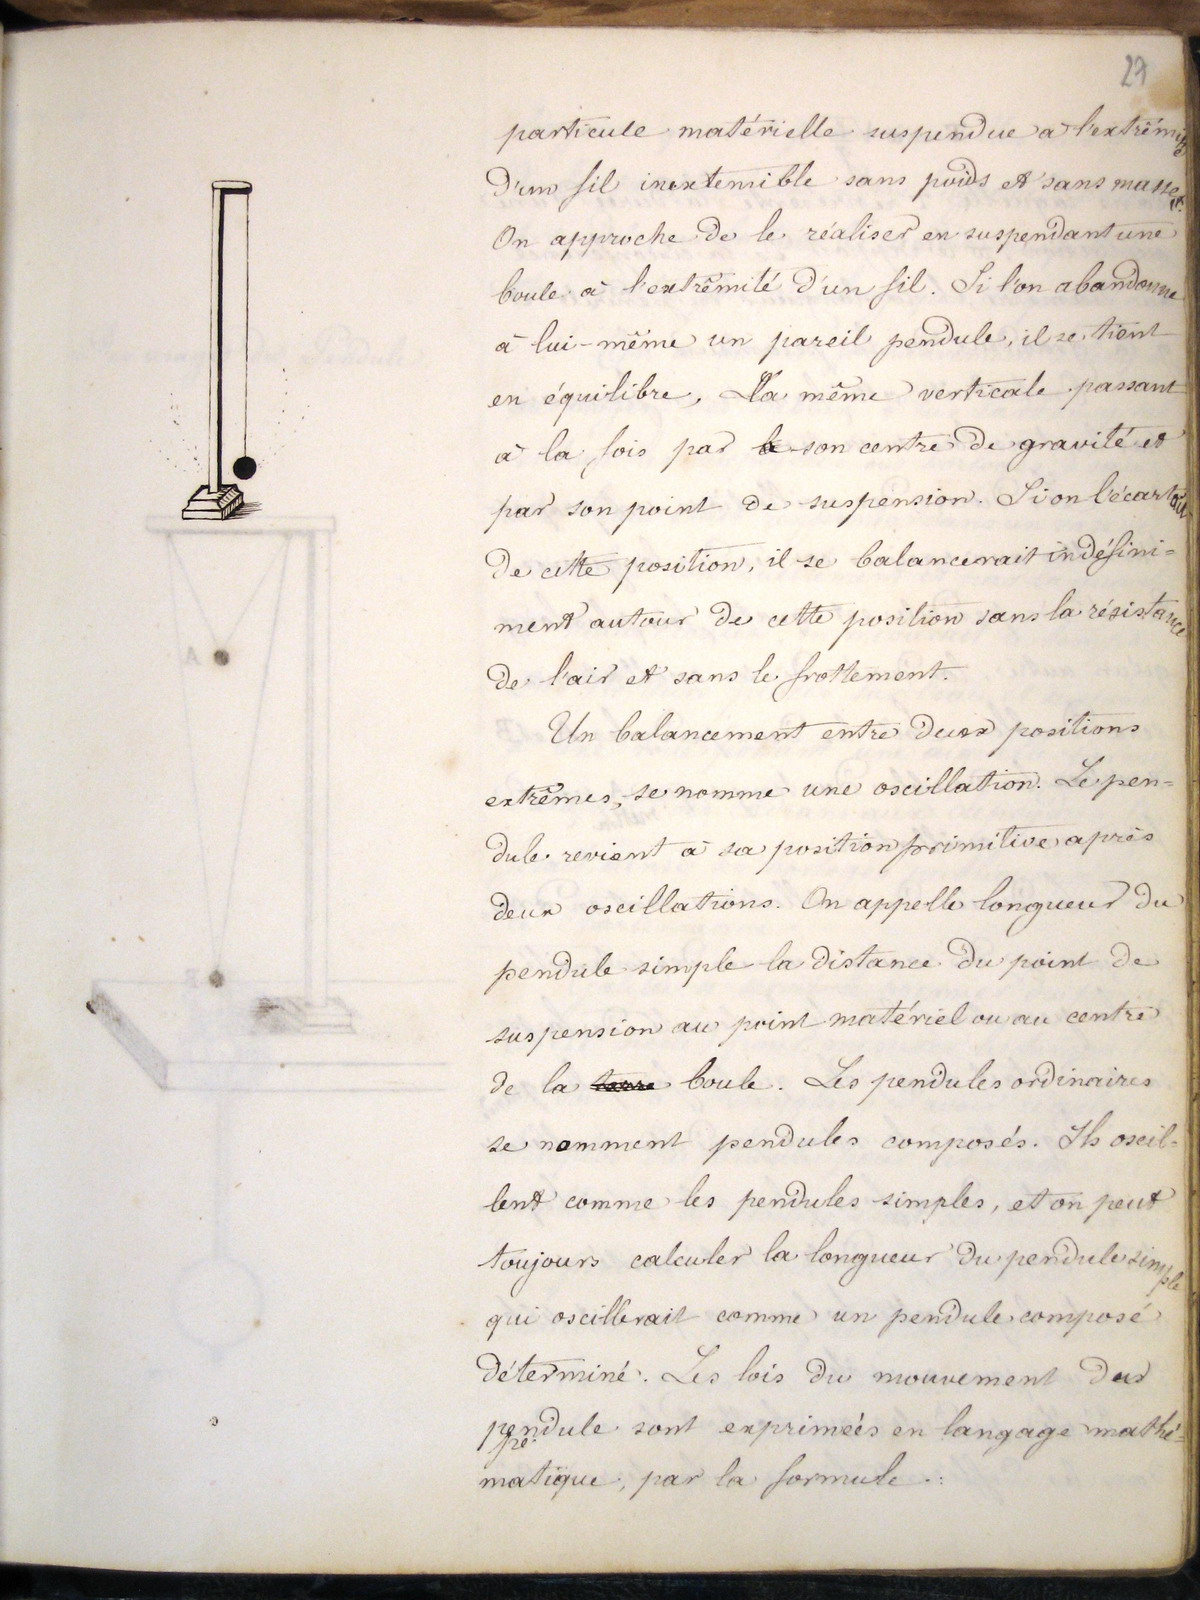 27
particule matérielle suspendue à l'extrémité
d'un fil inextensible sans poids et sans masse.
On approche de le réaliser en suspendant une
boule à l'extrêmité d'un fil. Si l'on abandonne
à lui-même un pareil pendule, il se tient
en équilibre, la même verticale passant
à la fois par son centre de gravité et
par son point de suspension. Si on l'écartait
de cette position, il se balancerait indéfini=
ment autour de cette position sans la résistance
de l'air et sans le frottement.
Un balancement entre deux positions
extrêmes, se nomme une oscillation. Le pen=
dule revient à sa position primitive après
deux oscillations. On appelle longueur du
pendule simple la distance du point de
suspension au point matériel ou au centre
de la terre boule. Les pendules ordinaires
se nomment pendules composés. Ils oscil-
lent comme les pendules simples, et on peut
toujours calculer la longueur du pendule simple
qui oscillerait comme un pendule composé
déterminé. Les lois du mouvement du
pendule sont exprimées en langage mathé=
matique, par la formule :
A
B